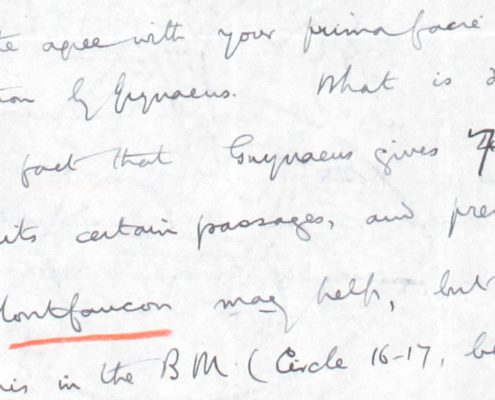 te agree with your prima facie
tion by Grynaeus. What is
fact that Grynaeus gives
its certain passages, and pre
Montfaucon may help, but
is in the B.M. (Circle 16-17, be